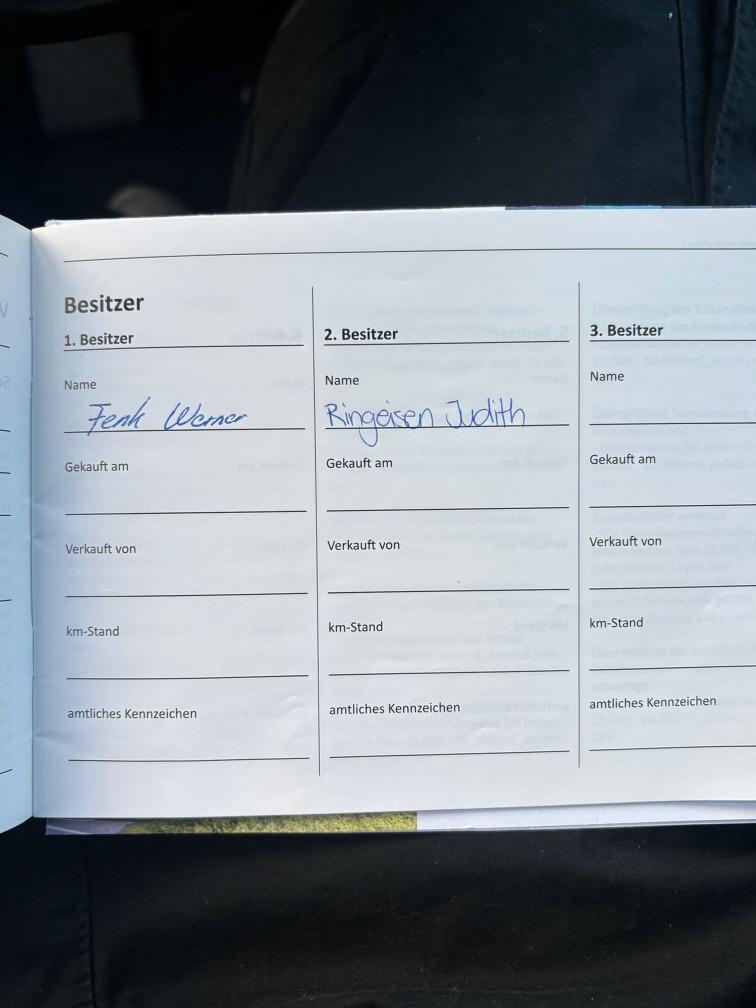 Besitzer
1. Besitzer
Name
Fenk Werner
Gekauft am
Verkauft von
km-Stand
amtliches Kennzeichen
2. Besitzer
Name
Ringeisen Judith
Gekauft am
Verkauft von
km-Stand
amtliches Kennzeichen
3. Besitzer
Name
Gekauft am
Verkauft von
km-Stand
amtliches Kennzeichen